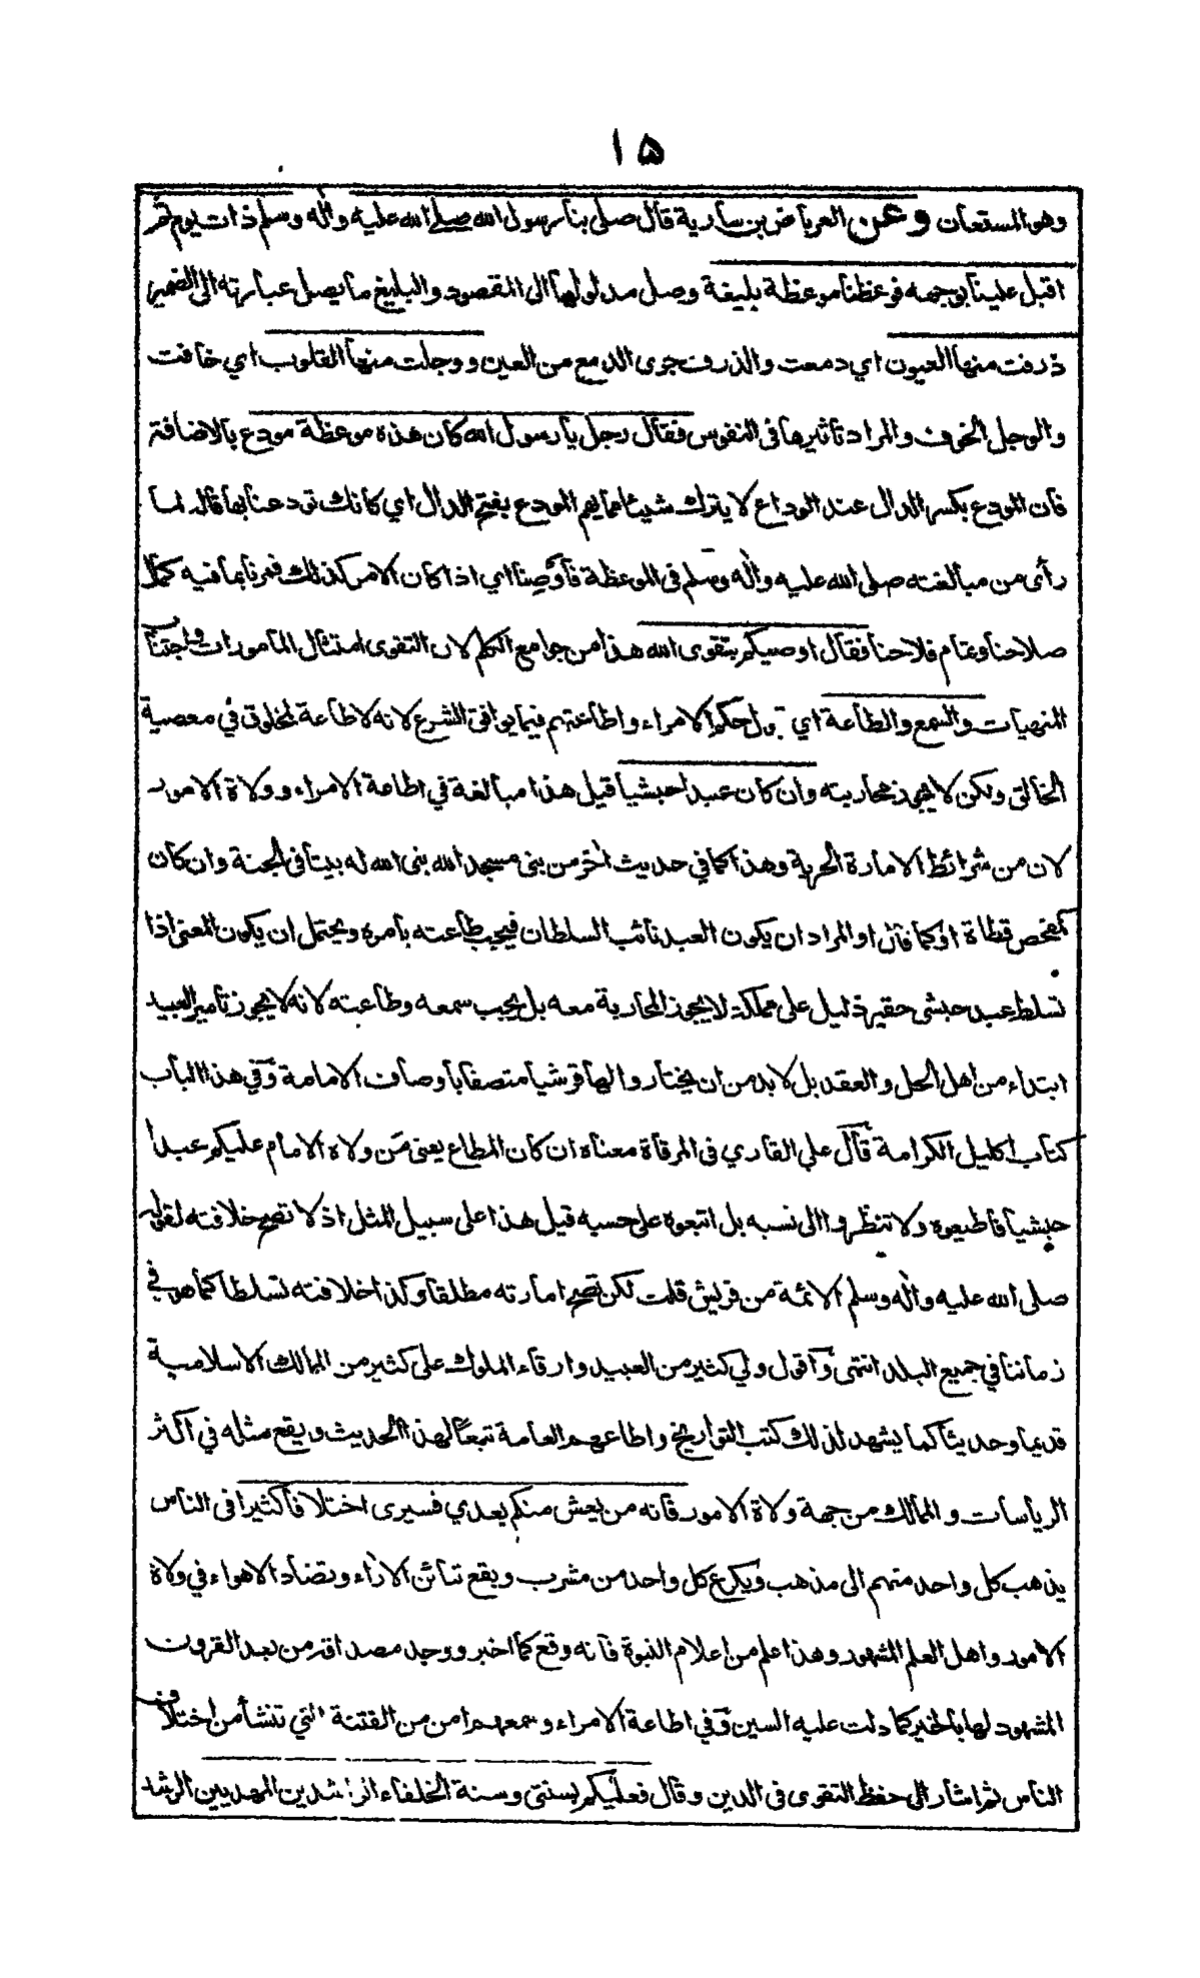 ١٥
وهو المستعان وعن العرباض بن سارية قال صلى بنا رسول الله صلى الله عليه واٰله وسلم ذات يوم ثم
اقبل علينا بوجهه فوعظنا موعظة بليغة وصل مدلولها الى المقصود والبليغ ما يصل عبارته الى الضمير
ذرفت منها العيون اي دمعت والذرف جرى الدمع من العين ووجلت منها القلوب اي خافت
والوجل الخوف والمراد تأثيرها فى النفوس فقال رجل يا رسول الله كان هذه موعظة مودع بالاضافة
فان المودع بكسر الدال عند الوداع لا يترك شيئا مما يهم المودع بفتح الدال اي كانك تودعنا بها قاله لما
رأى من مبالغته صلى الله عليه واٰله وسلم فى الموعظة فأوصِنا اي اذا كان الامر كذلك فمرنا بما فيه كمال
صلاحنا وتمام فلاحنا فقال اوصيكم بتقوى الله هذا من جوامع الكلم لان التقوى امتثال المأمورات واجتناب
المنهيات والسمع والطاعة اي قبول حكم الامراء واطاعتهم فيما يوافق الشرع لانه لا طاعة لمخلوق في معصية
الخالق ولكن لا يجوز محاربته وان كان عبدا حبشيا قيل هذا مبالغة في اطاعة الامراء وولاة الامور
لان من شرائط الامارة الحرية وهذا كما في حديث اٰخر من بنى مسجد الله بنى الله له بيتا فى الجنة وان كان
كمفحص قطاة او كما قال او المراد ان يكون العبد نائب السلطان فيجب طاعته بامره ويحتمل ان يكون المعنى اذا
تسلط عبد حبشى حقير ذليل على مملكة لا يجوز المحاربة معه بل يجب سمعه وطاعته لانه لا يجوز تأمير العبيد
ابتداء من اهل الحل والعقد بل لا بد من ان يختاروا لها قرشيا متصفا باوصاف الامامة وفي هذا الباب
كتاب اكليل الكرامة قال علي القاري فى المرقاة معناه ان كان المطاع يعنى من ولاه الامام عليكم عبدا
حبشيا فاطيعوه ولا تنظروا الى نسبه بل اتبعوه على حسبه قيل هذا على سبيل المثل اذ لا تصح خلافته لقوله
صلى الله عليه واٰله وسلم الائمة من قريش قلت لكن تصح امارته مطلقا وكذا خلافته تسلطا كما هو في
زماننا في جميع البلد انتهى واقول ولي كثير من العبيد وارقاء الملوك على كثير من الممالك الاسلامية
قديما وحديثا كما يشهد لذلك كتب التواريخ واطاعهم العامة تبعًا لهذا الحديث ويقع مثله في اكثر
الرياسات والممالك من جهة ولاة الامور فانه من يعش منكم بعدي فسيرى اختلافا كثيرا فى الناس
يذهب كل واحد منهم الى مذهب ويكرع كل واحد من مشرب ويقع تبائن الاٰراء وتضاد الاهواء في ولاة
الامور واهل العلم المشهور وهذا علم من اعلام النبوة فانه وقع كما اخبر ووجد مصداقه من بعد القرون
المشهود لها بالخير كما دلت عليه السين وفي اطاعة الامراء وسمعهم امن من الفتنة التي تنشأ من اختلاف
الناس ثم اشار الى حفظ التقوى فى الدين وقال فعليكم بسنتى وسنة الخلفاء الراشدين المهديين الرشد